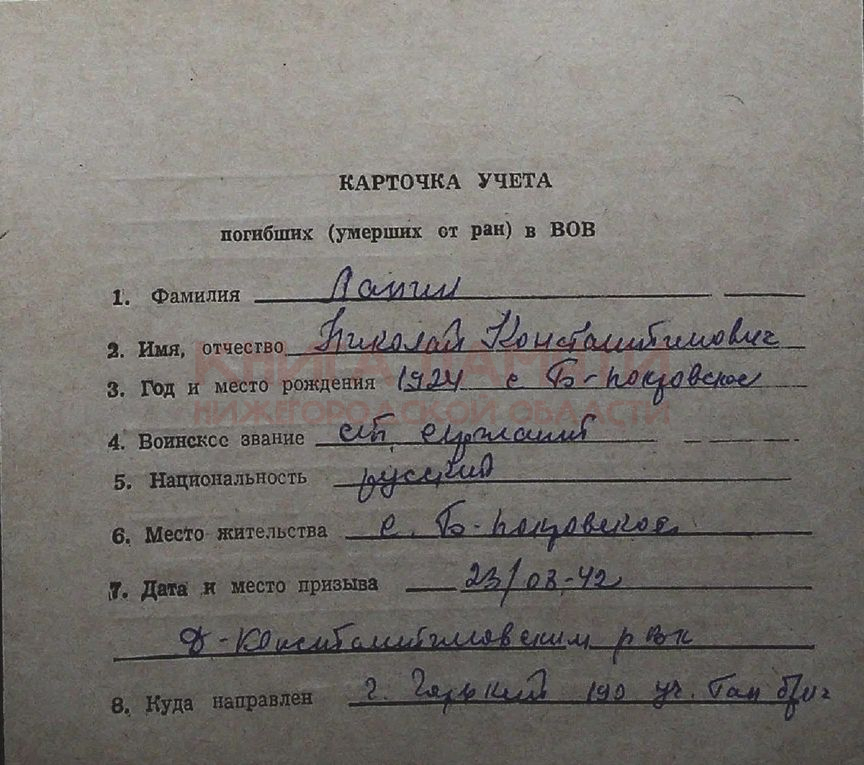 КАРТОЧКА УЧЕТА
погибших (умерших от ран) в ВОВ
1. Фамилия
2. Имя, отчество Николай Константинович
3. Год и место рождения 1924 с Б-Покровское
КНИГА ПАМЯТИ
НИЖЕГОРОДСКОЙ ОБЛАСТИ
4. Воинское звание ст сержант
5. Национальность русский
6. Место жительства с. Б-Покровское
7. Дата и место призыва 23/08-42
Д-Константиновским рвк
8. Куда направлен г. Горький 190 уч. тан бриг